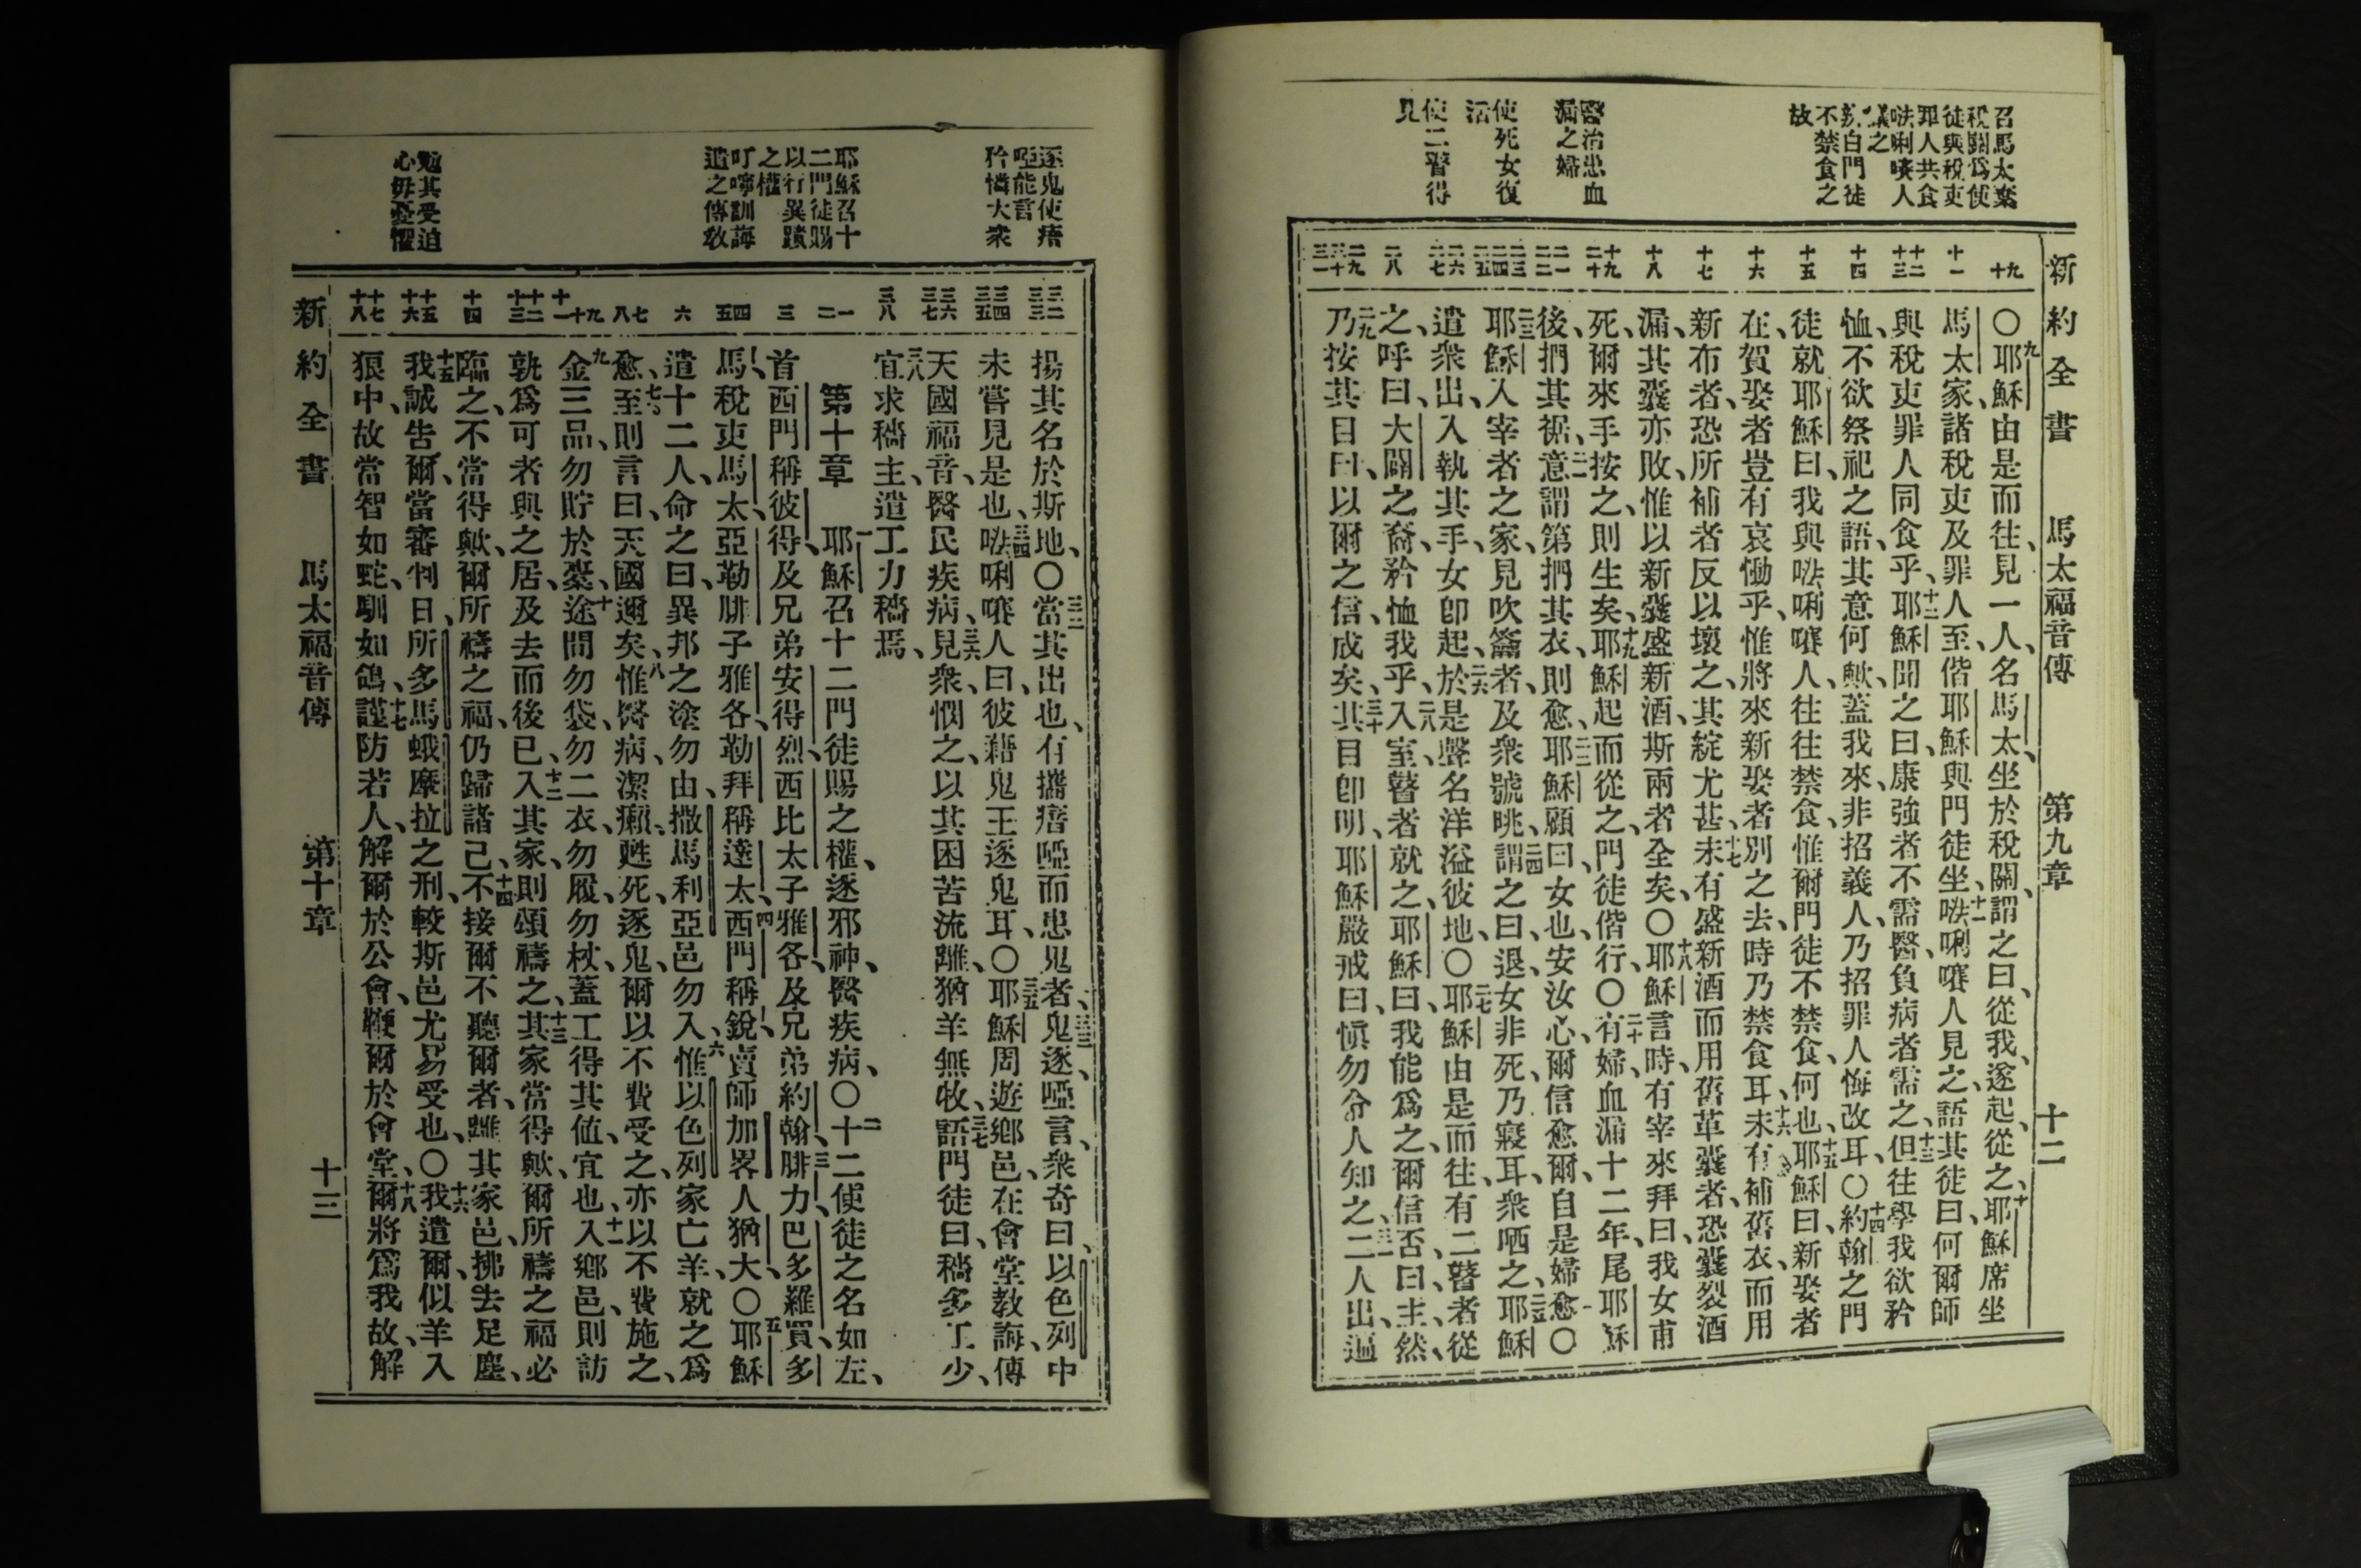 新約全書 馬太福音傳 第九章 十二
召馬太棄
稅關爲使
徒與稅吏
罪人共食
㕸唎㘔人
議之
不禁食之
故
醫治患血
漏之婦
使死女復
活
使二瞽得
見
〇九耶穌由是而往、見一人、名馬太、坐於稅關、謂之曰、從我、遂起、從之、十耶穌席坐
馬太家、諸稅吏及罪人至、偕耶穌與門徒坐、十一㕸唎㘔人見之、語其徒曰、何爾師
與稅吏罪人同食乎、十二耶穌聞之曰、康強者不需醫、負病者需之、十三但往學我欲矜
恤、不欲祭祀之語、其意何歟、蓋我來、非招義人、乃招罪人悔改耳、〇十四約翰之門
徒就耶穌曰、我與㕸唎㘔人往往禁食、惟爾門徒不禁食、何也、十五耶穌曰、新娶者
在、賀娶者豈有哀慟乎、惟將來新娶者別之去、時乃禁食耳、十六未有補舊衣、而用
新布者、恐所補者反以壞之、其綻尤甚、十七未有盛新酒而用舊革囊者、恐囊裂酒
漏、其囊亦敗、惟以新囊盛新酒、斯兩者全矣、〇十八耶穌言時、有宰來拜曰、我女甫
死、爾來手按之、則生矣、十九耶穌起而從之、門徒偕行、〇二十有婦、血漏十二年、尾耶穌
後、捫其裾、二一意謂第捫其衣、則愈、二二耶穌顧曰、女也、安汝心、爾信愈爾、自是婦愈〇
二三耶穌入宰者之家、見吹籥者、及衆號咷、二四謂之曰、退、女非死、乃寢耳、衆哂之、二五耶穌
遣衆出、入執其手、女卽起、二六於是聲名洋溢彼地、〇二七耶穌由是而往、有二瞽者從
之、呼曰、大闢之裔、矜恤我乎、二八入室、瞽者就之、耶穌曰、我能爲之、爾信否、曰、主、然、
二九乃按其目曰、以爾之信、成矣、三十其目卽明、耶穌嚴戒曰、愼勿令人知之、三一二人出、遍
逐鬼使瘖
啞能言
矜憐大衆
耶穌召十
二門徒賜
以行異蹟
之權
叮嚀訓誨
遣之傳敎
勉其受迫
心毋憂懼
揚其名於斯地、〇三二當其出也、有攜瘖啞而患鬼者、三三鬼逐、啞言、衆奇曰、以色列中
未嘗見是也、三四㕸唎㘔人曰、彼藉鬼王逐鬼耳、〇三五耶穌周遊鄉邑、在會堂敎誨、傳
天國福音、醫民疾病、三六見衆、憫之、以其困苦流離、猶羊無牧、三七語門徒曰、穡多工少、
三八宜求穡主、遣工力穡焉、
第十章 一耶穌召十二門徒、賜之權、逐邪神、醫疾病、〇二十二使徒之名如左、
首西門稱彼得、及兄弟安得烈、西比太子雅各、及兄弟約翰、三腓力、巴多羅買、多
馬、稅吏馬太、亞勒腓子雅各、勒拜稱達太、四西門稱銳、賣師加畧人猶大、〇五耶穌
遣十二人、命之曰、異邦之塗勿由、撒馬利亞邑勿入、六惟以色列家亡羊、就之爲
愈、七至則言曰、天國邇矣、八惟醫病、潔癩、甦死、逐鬼、爾以不費受之、亦以不費施之、
九金三品、勿貯於橐、十途間勿袋、勿二衣、勿履、勿杖、蓋工得其値、宜也、十一入鄉邑、則訪
孰爲可者與之居、及去而後已、十二入其家、則頌禱之、十三其家當得歟、爾所禱之福必
臨之、不當得歟、爾所禱之福、仍歸諸己、十四不接爾不聽爾者、離其家邑、拂去足塵、
十五我誠告爾、當審判日、所多馬蛾摩拉之刑、較斯邑尤易受也、〇十六我遣爾、似羊入
狼中、故當智如蛇、馴如鴿、十七謹防若人、解爾於公會、鞭爾於會堂、十八爾將爲我故、解
新約全書 馬太福音傳 第十章 十三